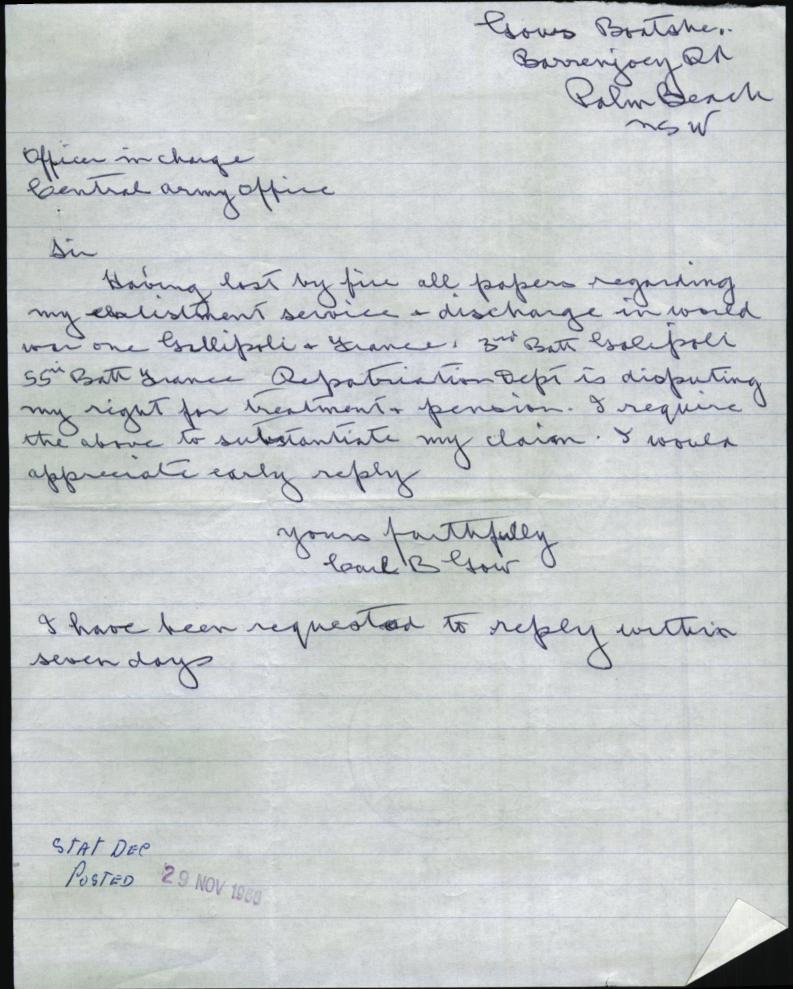 Gows Boatshe..
Barrenjoey Rd
Palm Beach
NSW
Officer in charge
Central army office
Sir
Having lost by fire all papers regarding
my enlistment service + discharge in world
war one Gallipoli + France. 3rd Batt Galipoli
55th Batt France Repatriation Dept is disputing
my right for treatment + pension. I require
the above to substantiate my claim. I would
appreciate early reply
yours faithfully
Carl B Gow
I have been requested to reply within
seven days
STAT DEC
POSTED 29 NOV